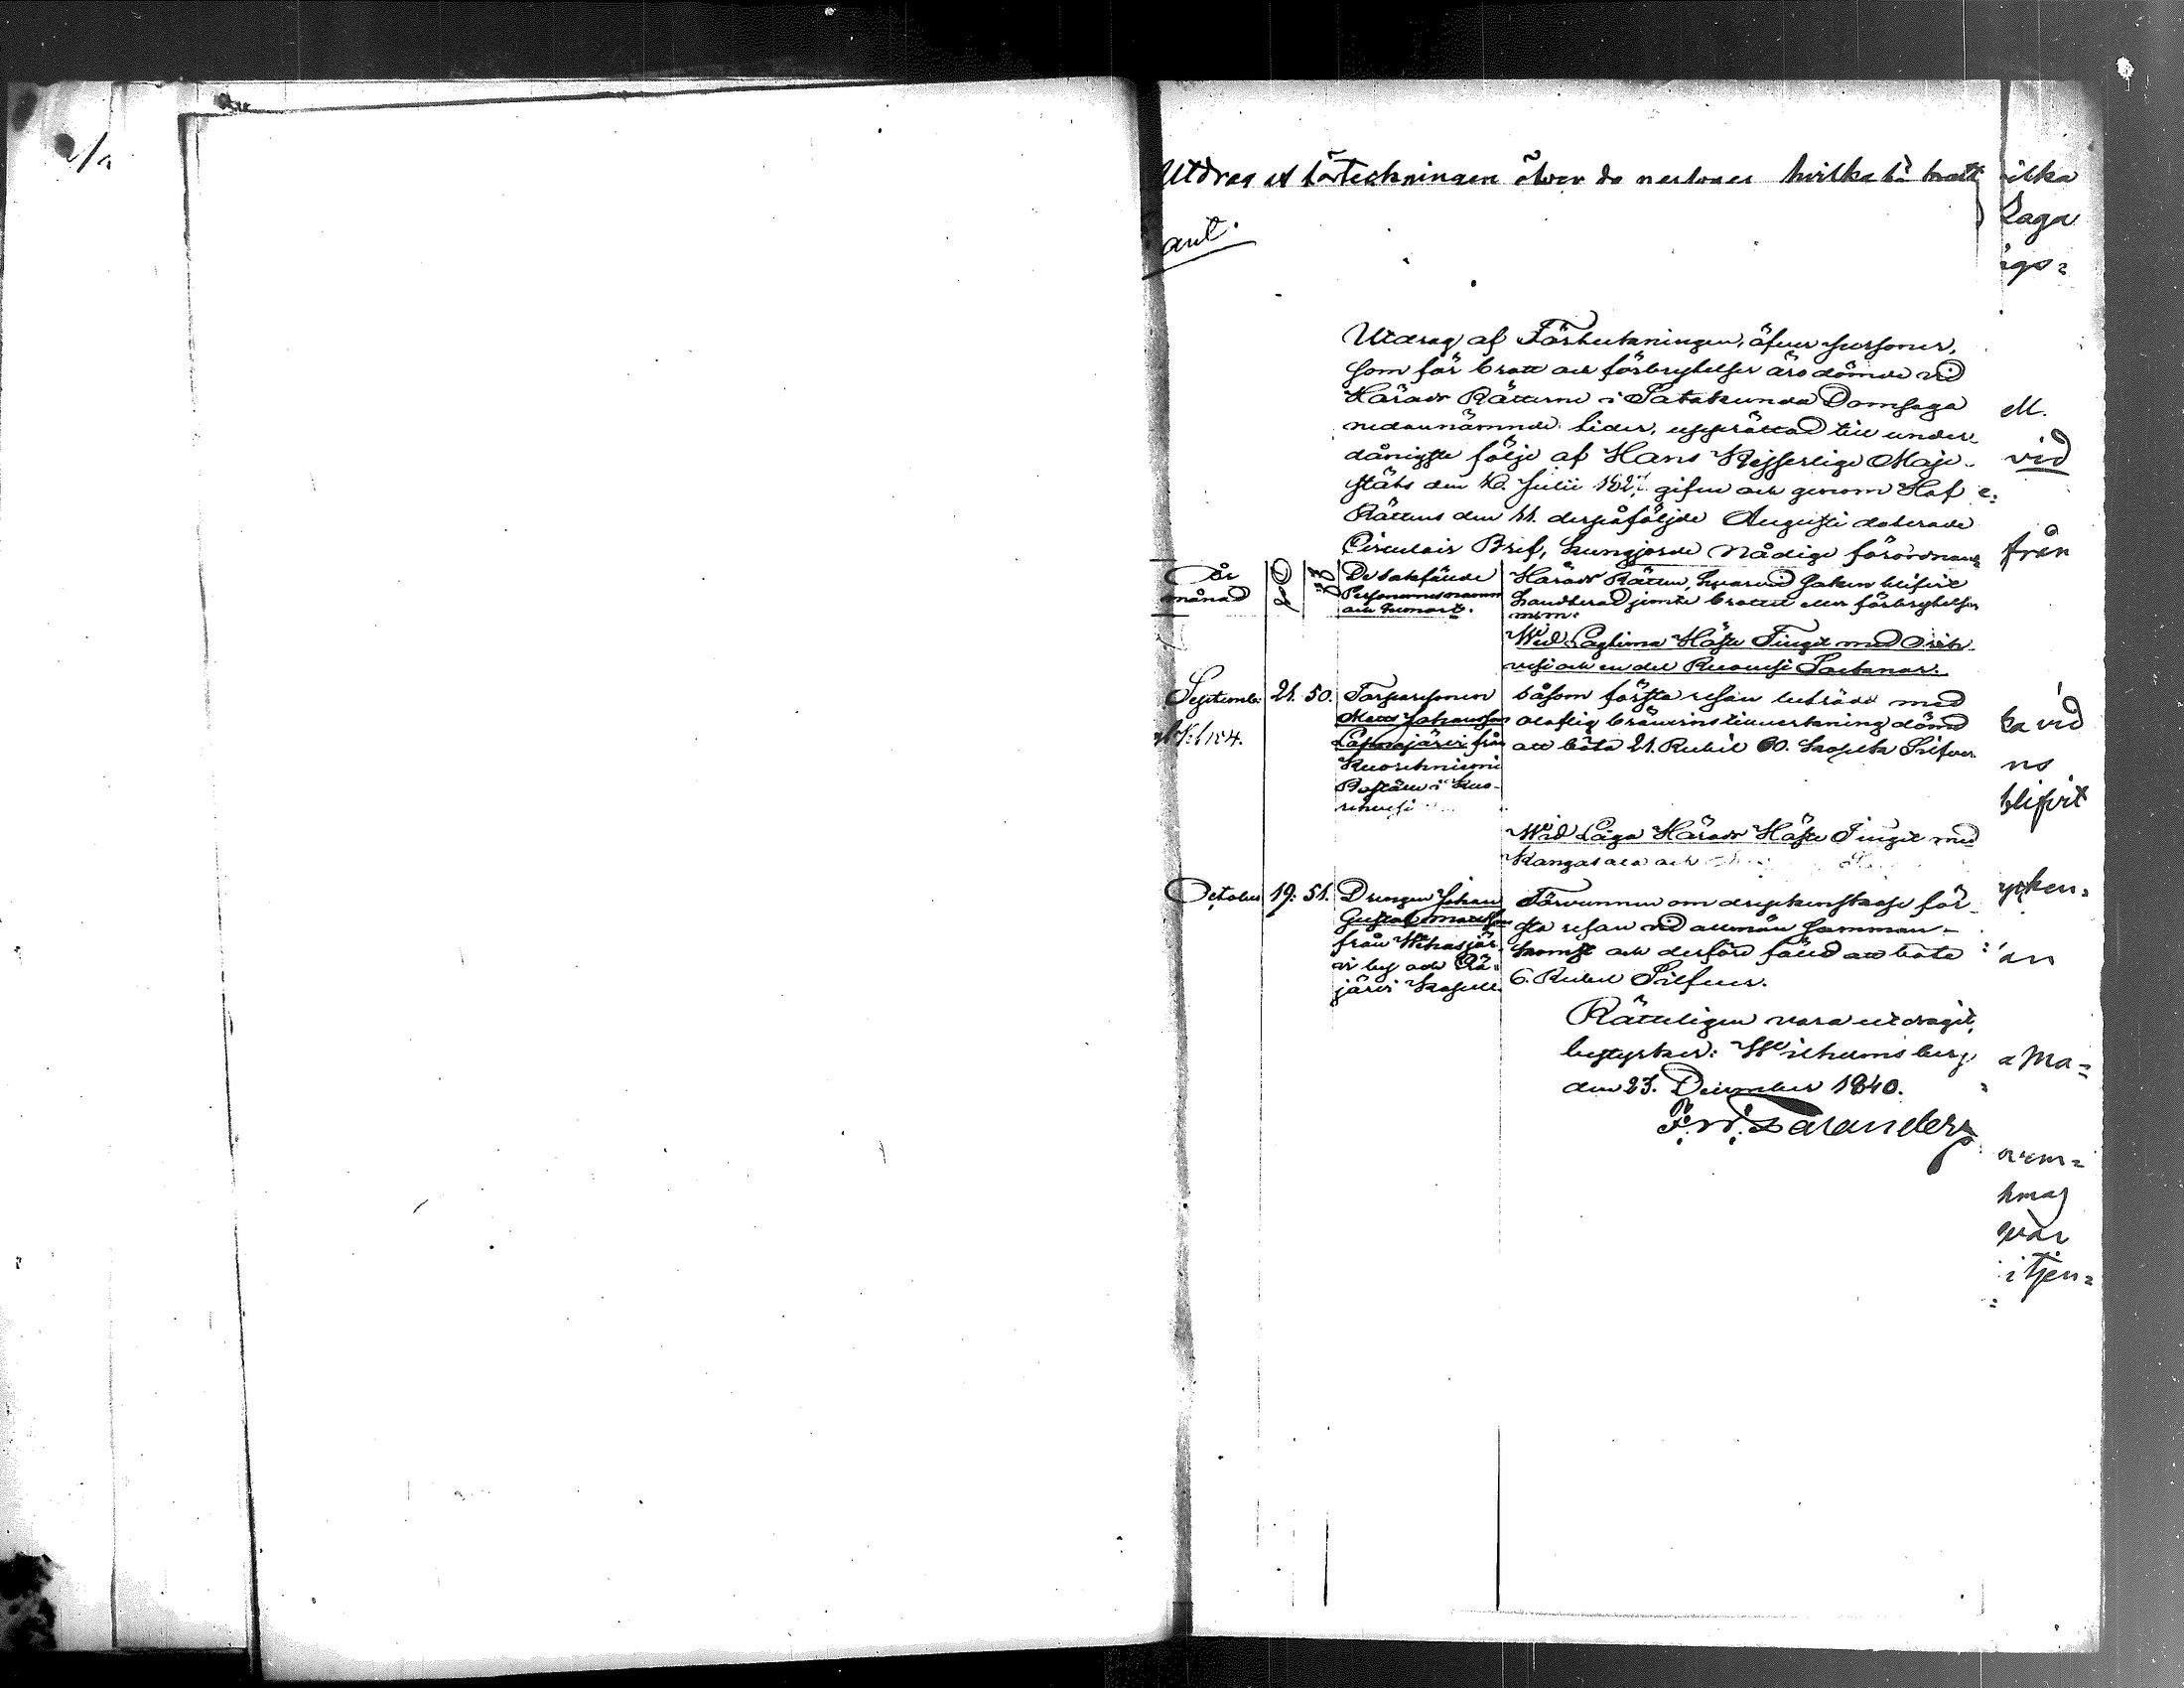 Utdrag af förteckningen öfver de personer hvilka för brott
Utdrag af Förteckningen, öfver personer,
som för brott och förbrytelser äro dömde vid
Härads Rätterne i Satakunda Domsaga
nedannämnde tider, upprättad till under-
dånigste följe af Hans Kejserlige Maje-
stäts den 10. Julii 1827. gifne och genom Hof
Rättens den 11. derpåföljde Augusti daterade
Circulair Bref, kungjorde Nådige förordnande
År
månad
De sakfälde
Personernes namn
och hemort.
Härads Rätten, hvarvid saken blifvit
handterad jemte brottet eller förbrytelsen
m:m:
Wid Lagtima Höste Tinget med Orih-
vesi och en del Ruovesi Socknar.
September 21. 50.
Torparesonen
Matts Johansson
från
Kuorehniemi
Rusthåll i Kuo-
rehvesi
såsom första resan beträdd med
olaflig bränvinstillverkning dömd
att böta 21. Rubel 60. kopek Silfver
Wid Laga Härads Höste Tinget med
Kangasala och
October 19. 51.
Drengen Johan
Gustaf Mattsson
från Wehasjär-
vi by och
järvi Kapell
Förvunnen om dryckenskap för-
sta resan vid allmän samman-
komst och derföre fäld att böta
6. Rubel Silfver.
Rätteligen vara utdraget,
bestyrker: Wilhelmsberg
den 23. December 1840.
ilka
Laga
igs=
M.
vid
från
ka vid
ns
blifvit
ycken=
än
a Ma=
hmag
var
i tjen=